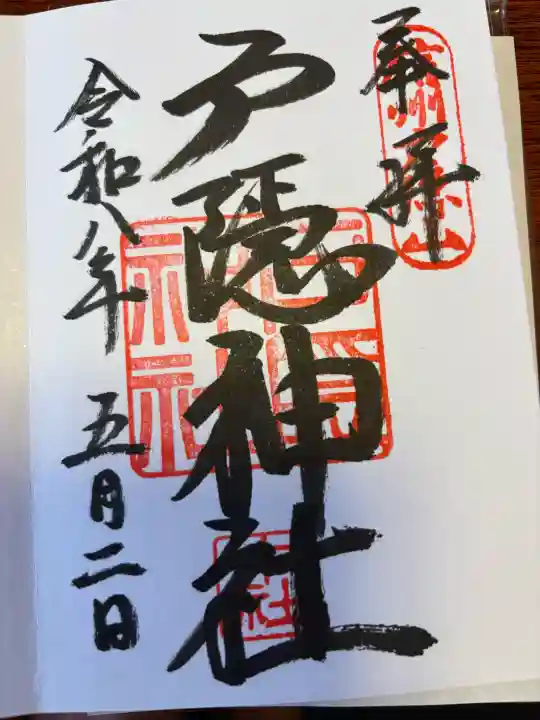 奉拝
戸隠神社
令和八年 五月二日